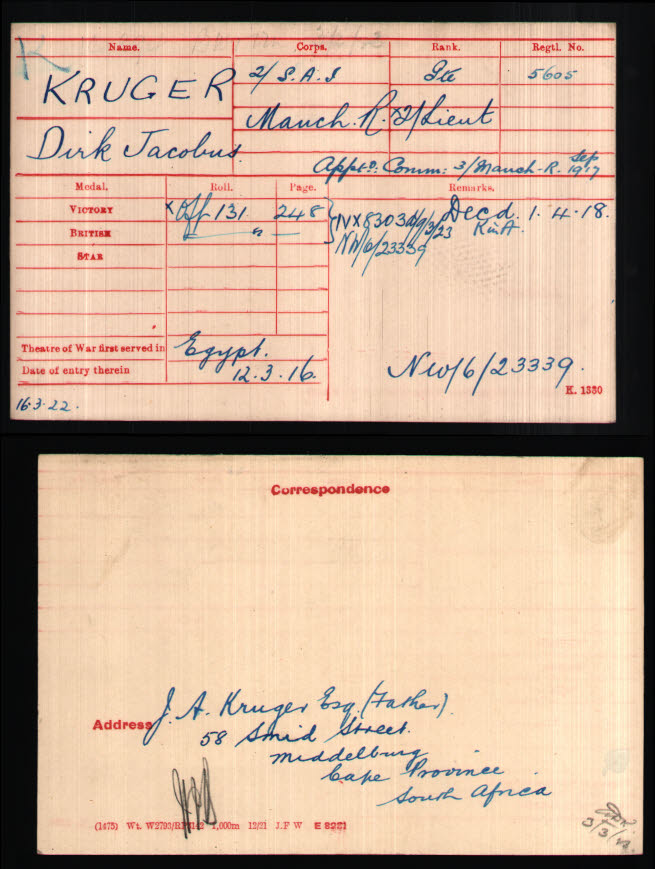 K
Name. Corps. Rank. Regtl. No.
KRUGER 2/S.A.I Pte 5605
Dirk Jacobus. Manch. R. x2/Lieut
Apptd. Comm: 3/Manch. R. Sep 1917
Medal. Roll. Page. Remarks.
VICTORY x Off 131 248 NX8303 9/3/23 Decd. 1.4.18.
BRITISH " K in A.
NW/6/23339
STAR
Theatre of War first served in Egypt.
Date of entry therein 12.3.16. NW/6/23339.
K. 1380
16.3.22.
Correspondence
Address J. A. Kruger Esq. (Father).
58 Smid Street.
Middelburg
Cape Province
South Africa
(1475) Wt. 1,000m 12/21 J.F W E 8221
3/3/